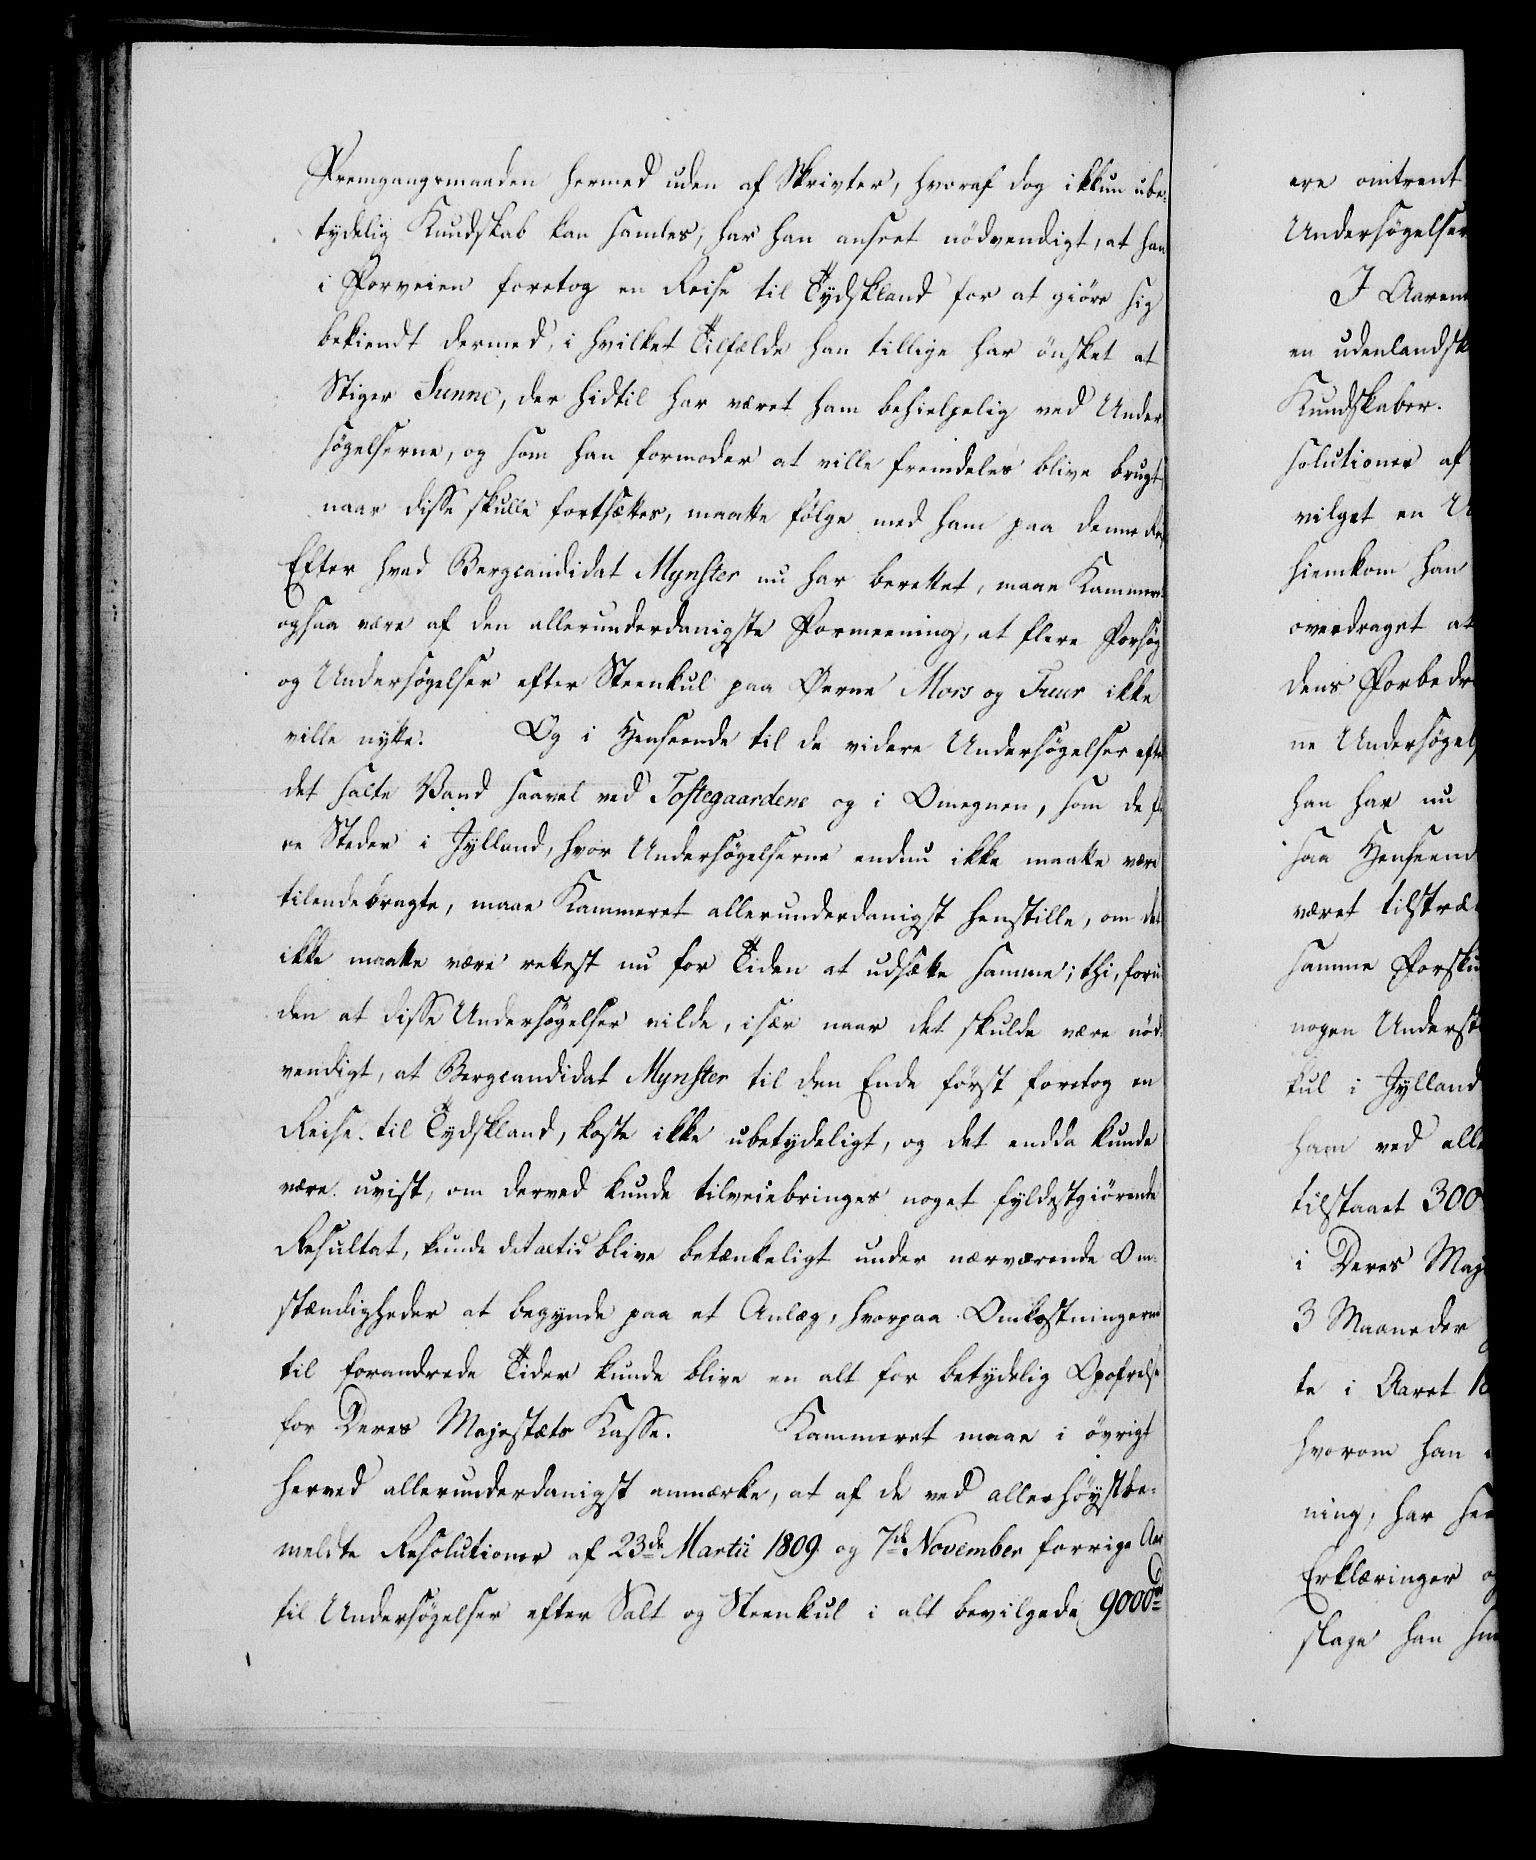 Fremgangsmaaden hermed uden af Skrivter, hvoraf dog ikkun ube-
tydelig Kundskab kan samles, har han anseet nödvendigt, at han
i Forveien foretog en Reise til Tydskland for at giöre sig
bekiendt dermed, i hvilket Tilfælde han tillige har önsket at
Stiger Sunne, der hidtil har været ham behielpelig ved Under
søgelserne, og som han formoder at ville fremdeles blive brugt
naar disse skulle fortsættes, maatte følge med ham paa denne
Efter hvad Bergcandidat Mynster nu har berettet, maae Kammeret
ogsaa være af den allerunderdanigste Formeening, at flere Forsøg
og Undersøgelser efter Steenkul paa Øerne Mors og Fuur ikke
ville nytte. Og i Henseende til de videre Undersøgelser efter
det salte Vand saavel ved Toftegaardene og i Omegnen, som de
re Steder i Jylland, hvor Undersøgelserne endnu ikke maatte være
tilendebragte, maae Kammeret allerunderdanigst henstille, om det
ikke maatte være rettest nu for Tiden at udsætte samme; thi, foru
den at disse Undersøgelser vilde, især naar det skulde være nöd-
vendigt, at Bergcandidat Mynster til den Ende først foretog en
Reise til Tydskland, koste ikke ubetydeligt, og det endda kunde
være uvist, om derved kunde tilveiebringes noget fyldestgiörende
Resultat, kunde det altid blive betænkeligt under nærværende Om-
stændigheder at begynde paa et Anlæg, hvorpaa Omkostningerne
til forandrede Tider kunde blive en alt for betydelig Opofrelse
for Deres Majestæts Kasse. Kammeret maae i övrigt
herved allerunderdanigst anmærke, at af de ved allerhöystbe-
meldte Resolutioner af 23de Martii 1809 og 7de November forrige Aar
til Undersøgelser efter Salt og Steenkul i alt bevilgede 9000
ere omtrent
Undersøgelser
I Aarene
en udenlandsk
Kundskaber.
solutioner af
vilget en U
hiemkom han
overdraget at
dens Forbedr
ne Undersøgels
han har nu
saa Henseen
været tilstræ
samme Forsku
nogen Underst
kul i Jylland
ham ved alle
tilstaaet 300
i Deres Maj
3 Maaneder
te i Aaret 18
hvorom han
ning, har
Erklæringer o
slage han